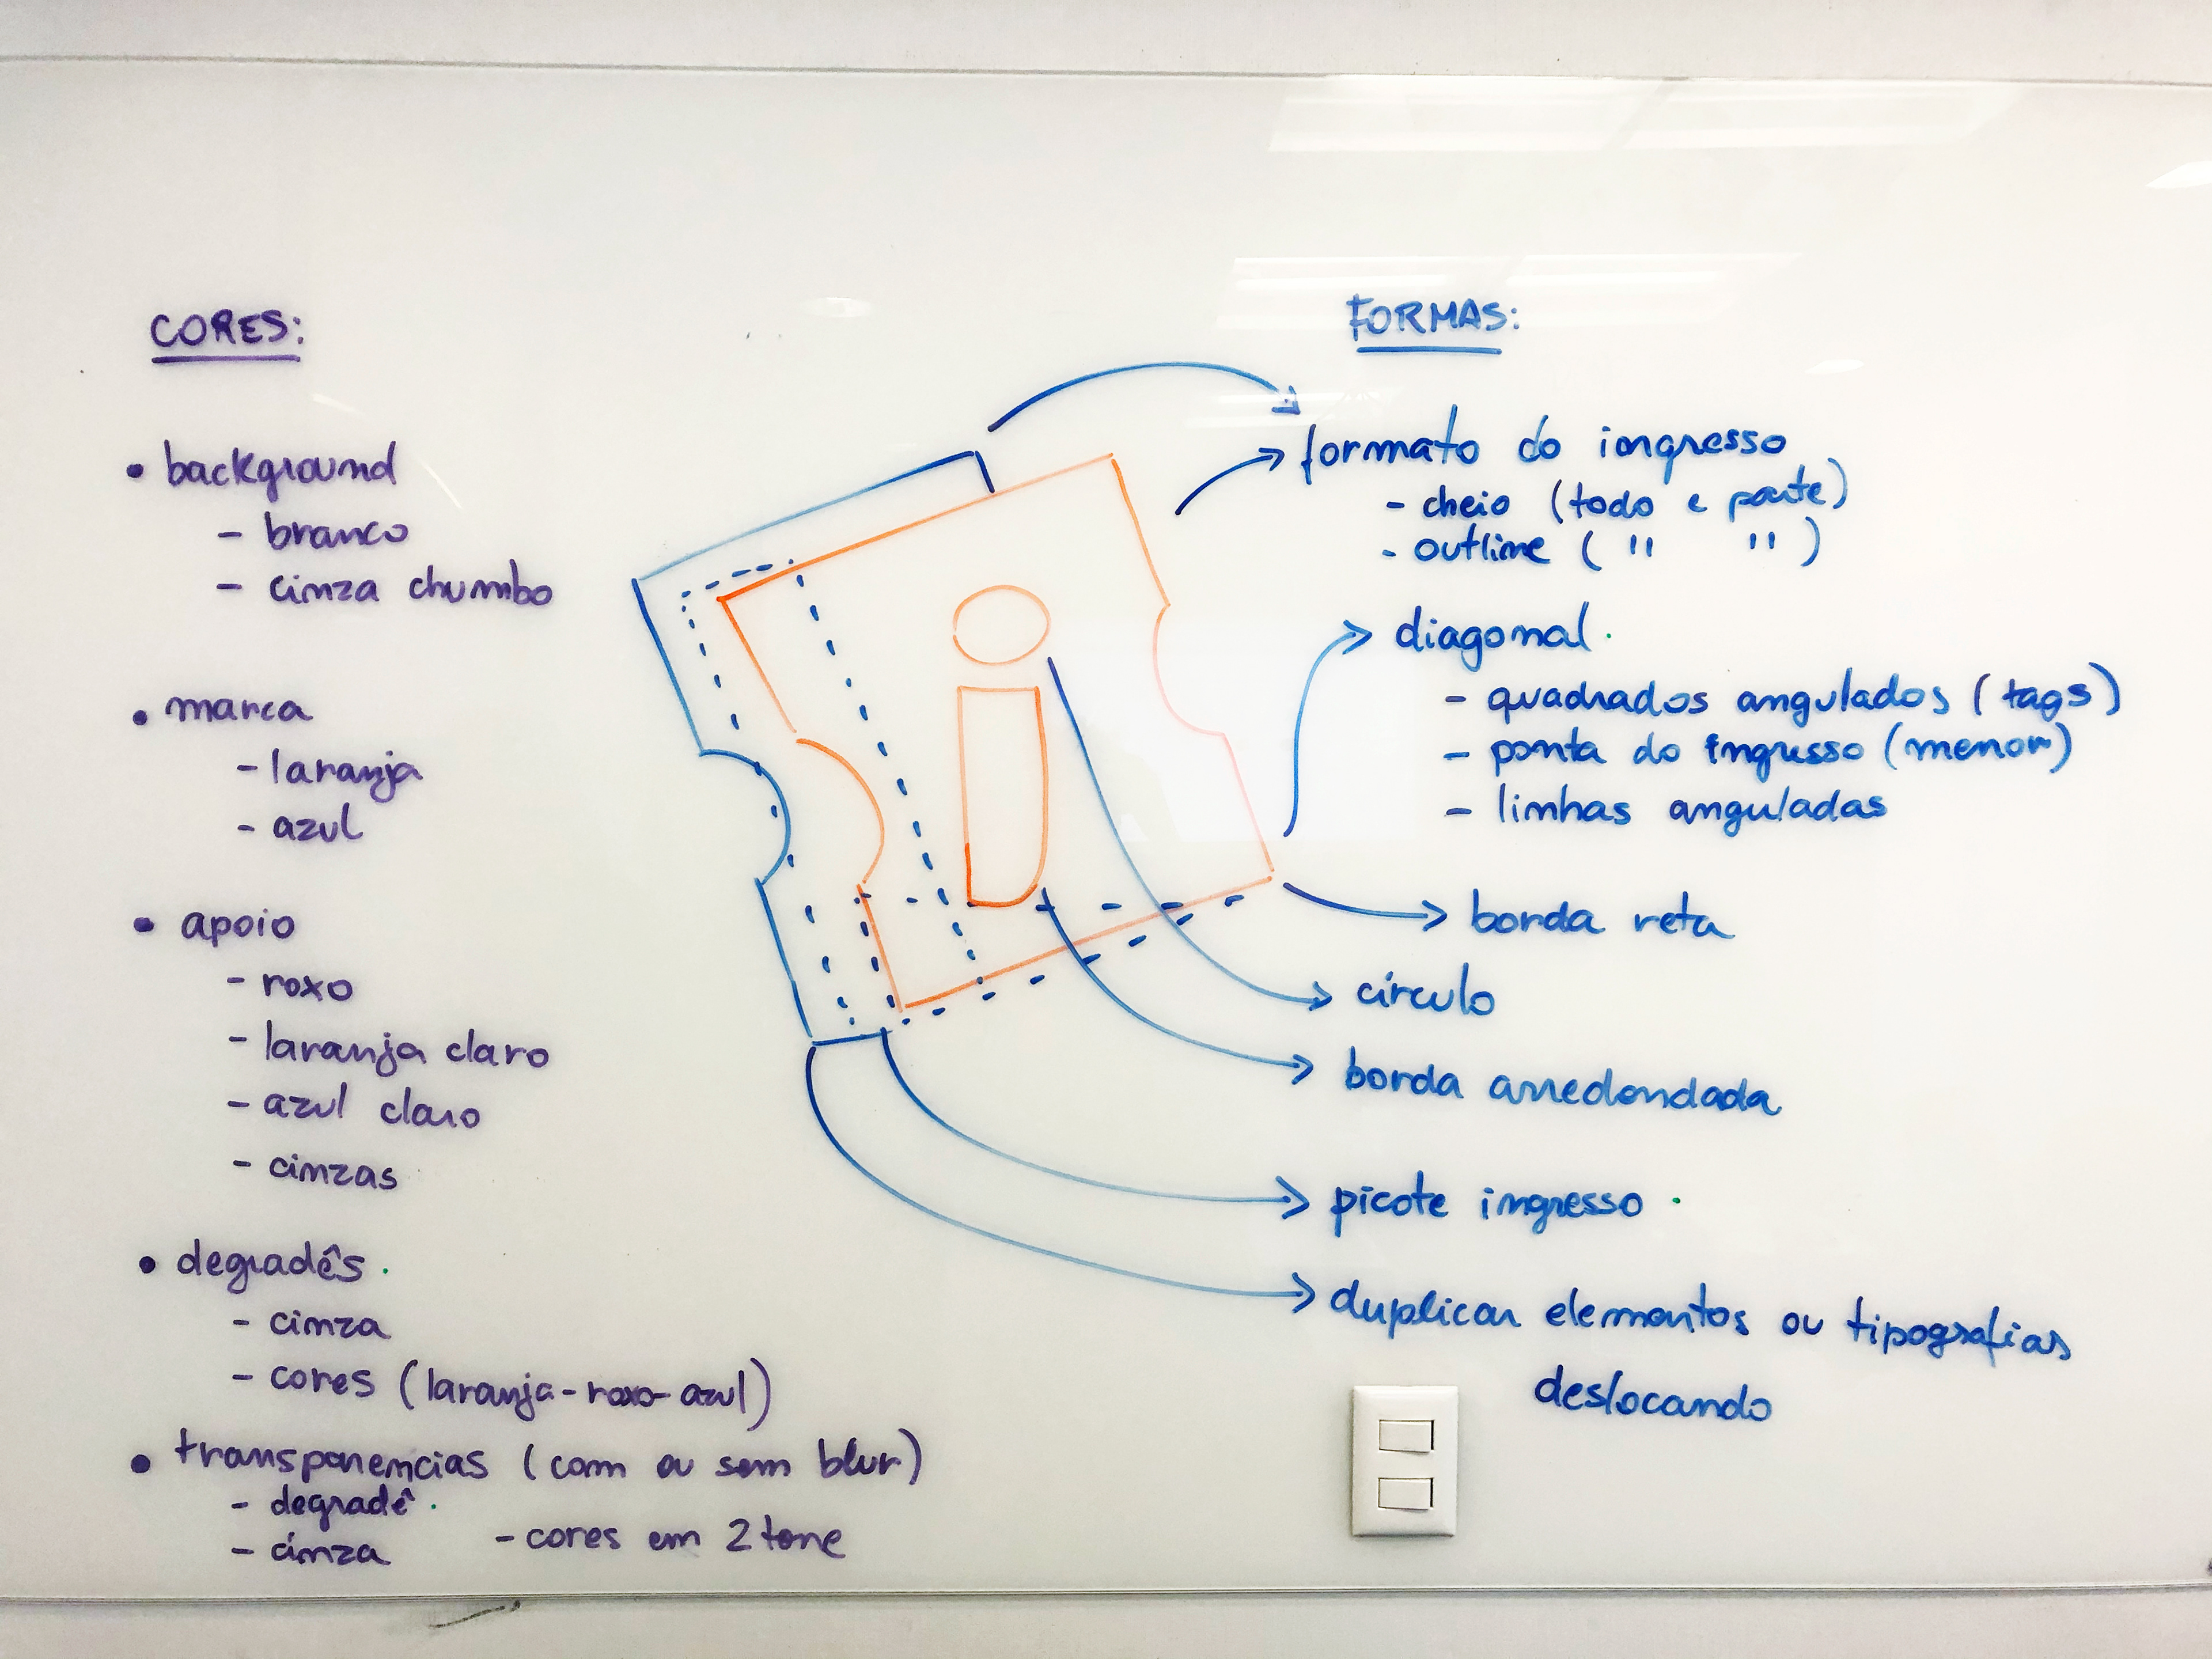 CORES:
• background
- branco
- cinza chumbo
• marca
- laranja
- azul
• apoio
- roxo
- laranja claro
- azul claro
- cinzas
• degradês
- cinza
- cores (laranja-roxo-azul)
• transparencias (com ou sem blur)
- degradê
- cinza
- cores em 2 tone
i
FORMAS:
formato do ingresso
- cheio (todo e parte)
- outline ( " " )
diagonal
- quadrados angulados (tags)
- ponta do ingresso (menor)
- linhas anguladas
borda reta
círculo
borda arredondada
picote ingresso
duplicar elementos ou tipografias
deslocando